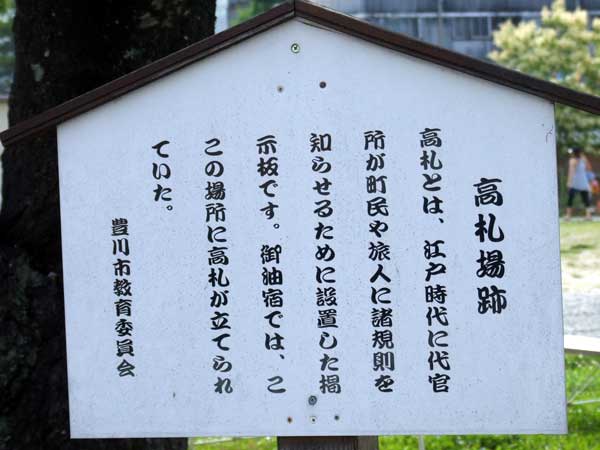 高札場跡
高札とは、江戸時代に代官
所が町民や旅人に諸規則を
知らせるために設置した掲
示板です。御油宿では、こ
この場所に高札が立てられ
ていた。
豊川市教育委員会